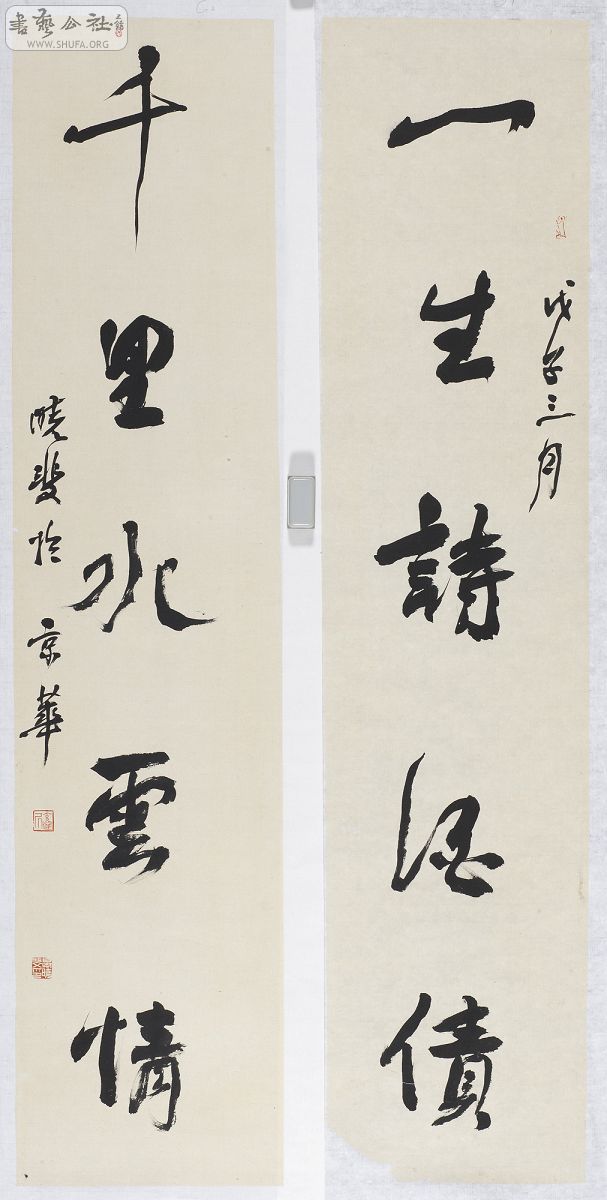 一生詩酒債
戊子三月
千里水雲情
曉斐於京華
書藝公社
WWW.SHUFA.ORG